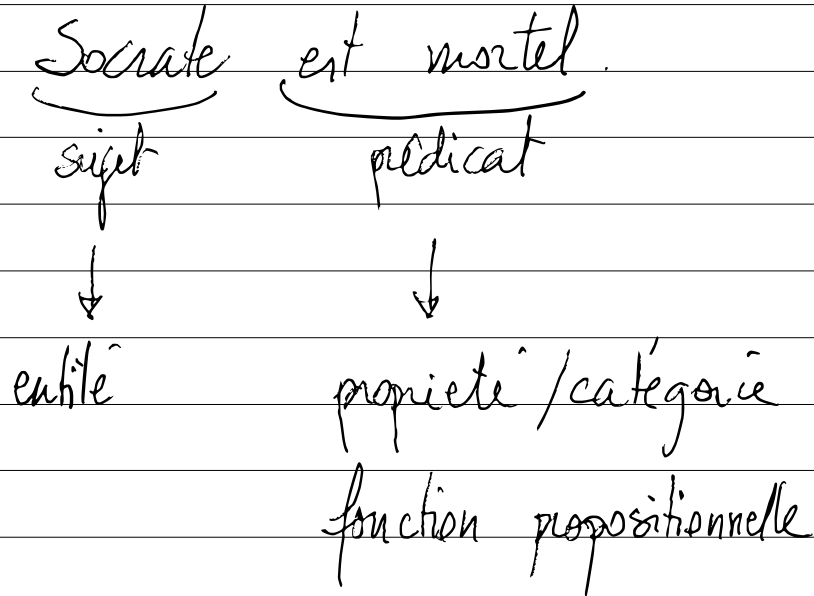 Socrate est mortel.
sujet prédicat
entité propriété / catégorie
fonction propositionnelle